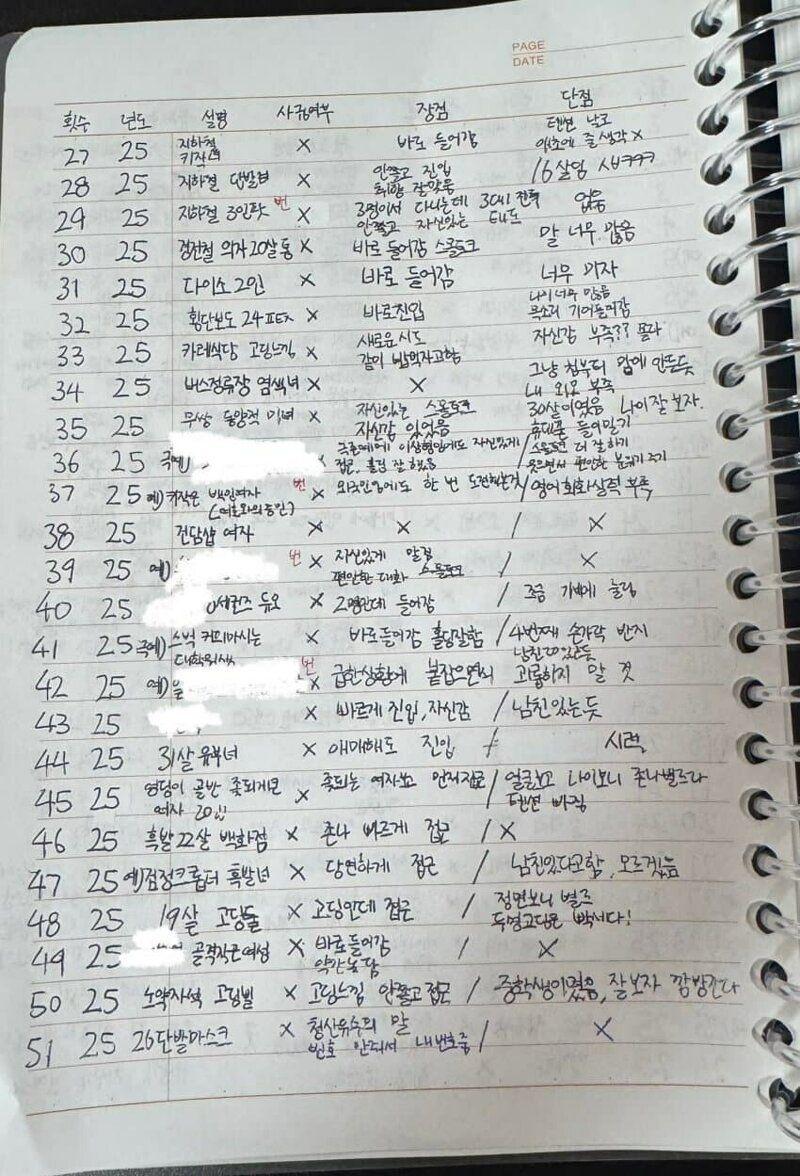 PAGE
DATE
횟수 년도 설명 사귐여부 장점 단점
27 25 지하철 키작녀 X 바로 들어감 텐션 낮고 애초에 줄 생각 X
28 25 지하철 단발녀 X 안쫄고 진입 취향 잘맞춤 16살임 시부ㅋㅋㅋ
29 25 지하철 3인팟 번 X 3명이서 다니는데 3대1 전투 안쫄고 자신있는 태도 없음
30 25 의자 20살 통 X 바로 들어감 스몰토크 말 너무 많음
31 25 다이소 2인 X 바로 들어감 너무
32 25 횡단보도 24 X 바로진입 나이너무 많음 목소리 기어들어감
33 25 카레식당 고딩느낌 X 새로운시도 같이 밥먹자고함 자신감 부족?? 몰라
34 25 버스정류장 염색녀 X X 그냥 첨부터 맘에 안든듯 내 외모 부족
35 25 무쌍 동양적 미녀 X 자신있는 스몰토크 자신감 있었음 30살이었음 나이 잘 보자.
36 25 극예) X 극존예에 이상형임에도 자신있게 접근, 홀딩 잘했음 / 휴대폰 들이밀기 스몰토크 더 잘하기 웃으면서 편안한 분위기 주기
37 25 예) 키작은 백인여자 번 X 외국인임에도 한 번 도전하는것 / 영어회화실력 부족
38 25 전담샵 여자 X X / X
39 25 예) 번 X 자신있게 말걸 편안한 대화 스몰토크 / X
40 25 듀오 X 2명인데 들어감 / 조금 기세에 눌림
41 25 극예) 스벅 커피마시는 대학원생 X 바로들어감 홀딩잘함 / 4번째 손가락 반지 남친 있는듯
42 25 예) 을 번 X 급한상황에 붙잡으면서 괴롭히지 말 것
43 25 X 바르게 진입, 자신감 / 남친있는듯
44 25 31살 유부녀 X 애매해도 진입 / 시력
45 25 엉덩이 골반 좆되게큰 여자 20 X 좆되는 여자보고 먼저접근 / 얼굴보고 나이보니 존나별로라 텐션 빠짐
46 25 흑발 22살 백화점 X 존나 빠르게 접근 / X
47 25 예) 검정크롭티 흑발녀 X 당연하게 접근 / 남친있다고함, 모르겠음
48 25 19살 고딩들 X 고딩인데 접근 / 정면보니 별로 두명고딩은 빡세다!
49 25 골격작은여성 X 바로들어감 약간농담 / X
50 25 노약자석 고딩삘 X 고딩느낌 안쫄고접근 / 중학생이였음, 잘보자 깜빵간다
51 25 26단발마스크 X 청산유수의 말 번호 안줘서 내번호줌 / X